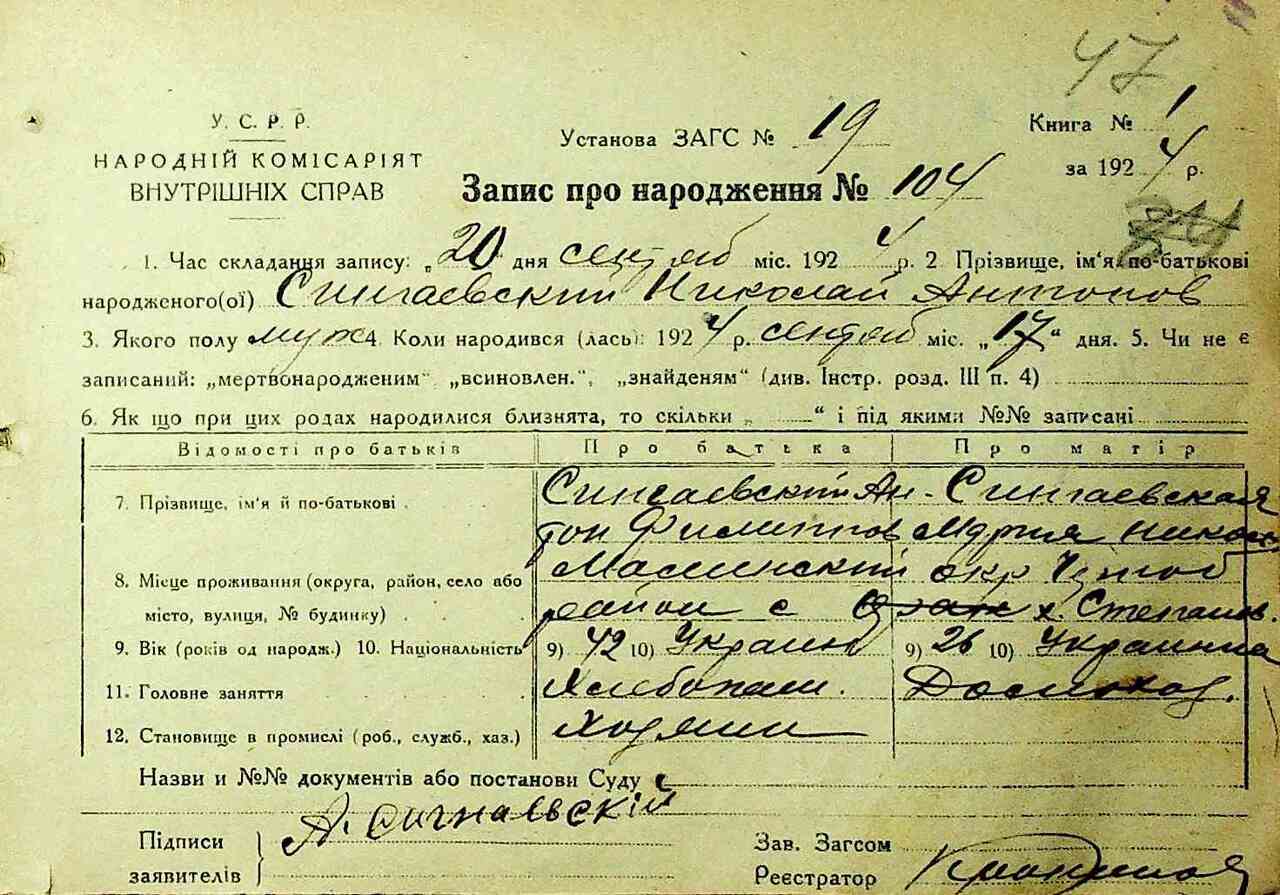 47
У. С. Р. Р.
НАРОДНІЙ КОМІСАРІЯТ
ВНУТРІШНІХ СПРАВ
Установа ЗАГС № 19
Книга № 1
за 1924 р.
Запис про народження № 104
1. Час складання запису: „20 дня сентяб міс. 1924 р. 2 Прізвище, ім'я по-батькові
народженого(ої) Сингаевский Николай Антонов
3. Якого полу муж 4. Коли народився (лась): 1924 р. сентяб міс. „17“ дня. 5. Чи не є
записаний: „мертвонародженим“ „всиновлен.“, „знайденям“ (див. Інстр. розд. III п. 4)
6. Як що при цих родах народилися близнята, то скільки „ “ і під якими №№ записані
Відомості про батьків Про батька Про матір
7. Прізвище, ім'я й по-батькові
Сингаевский Ан-
тон Филиппов
Сингаевская
Мария Никол
8. Місце проживання (округа, район, село або
місто, вулиця, № будинку)
окр
район с х. Степанов.
9. Вік (років од народж.) 10. Національність 9) 42 10) Украин 9) 26 10) Украинка
11. Головне заняття Хлебопаш. Домохоз.
12. Становище в промислі (роб., служб., хаз.) Хозяин
Назви и №№ документів або постанови Суду
Підписи
заявителів
А. Сигнаевскій
Зав. Загсом
Реєстратор